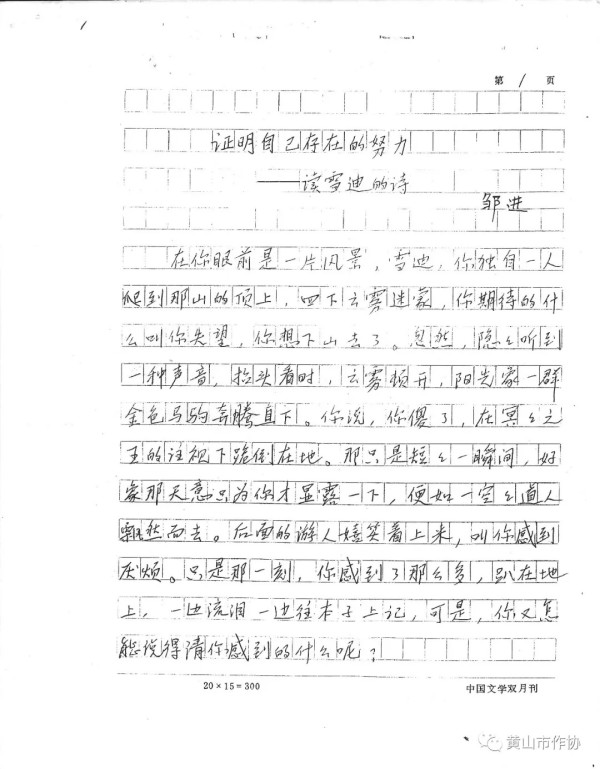 1
第 1 页
证明自己存在的努力
——读雪迪的诗
邹进
在你眼前是一片风景，雪迪，你独自一人
爬到那山的顶上，四下云雾迷蒙，你期待的什
么叫你失望，你想下山去了。忽然，隐々听到
一种声音，抬头看时，云雾顿开，阳光象一群
金色马驹奔腾直下。你说，你傻了，在冥々之
王的注视下跪倒在地。那只是短々一瞬间，好
象那天意只为你才显露一下，便如一空々道人
飘然而去。后面的游人嬉笑着上来，叫你感到
厌烦。只是那一刻，你感到了那么多，趴在地
上，一边流泪一边往本子上记，可是，你又怎
能说得清你感到的什么呢？
20×15=300
中国文学双月刊
黄山市作协